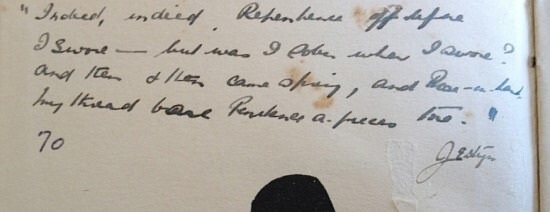 "Indeed, indeed, Repentance oft before
I swore — but was I sober when I swore?
and then & then came Spring, and Rose-in-hand
my thread bare Penitence a-pieces tore."
70